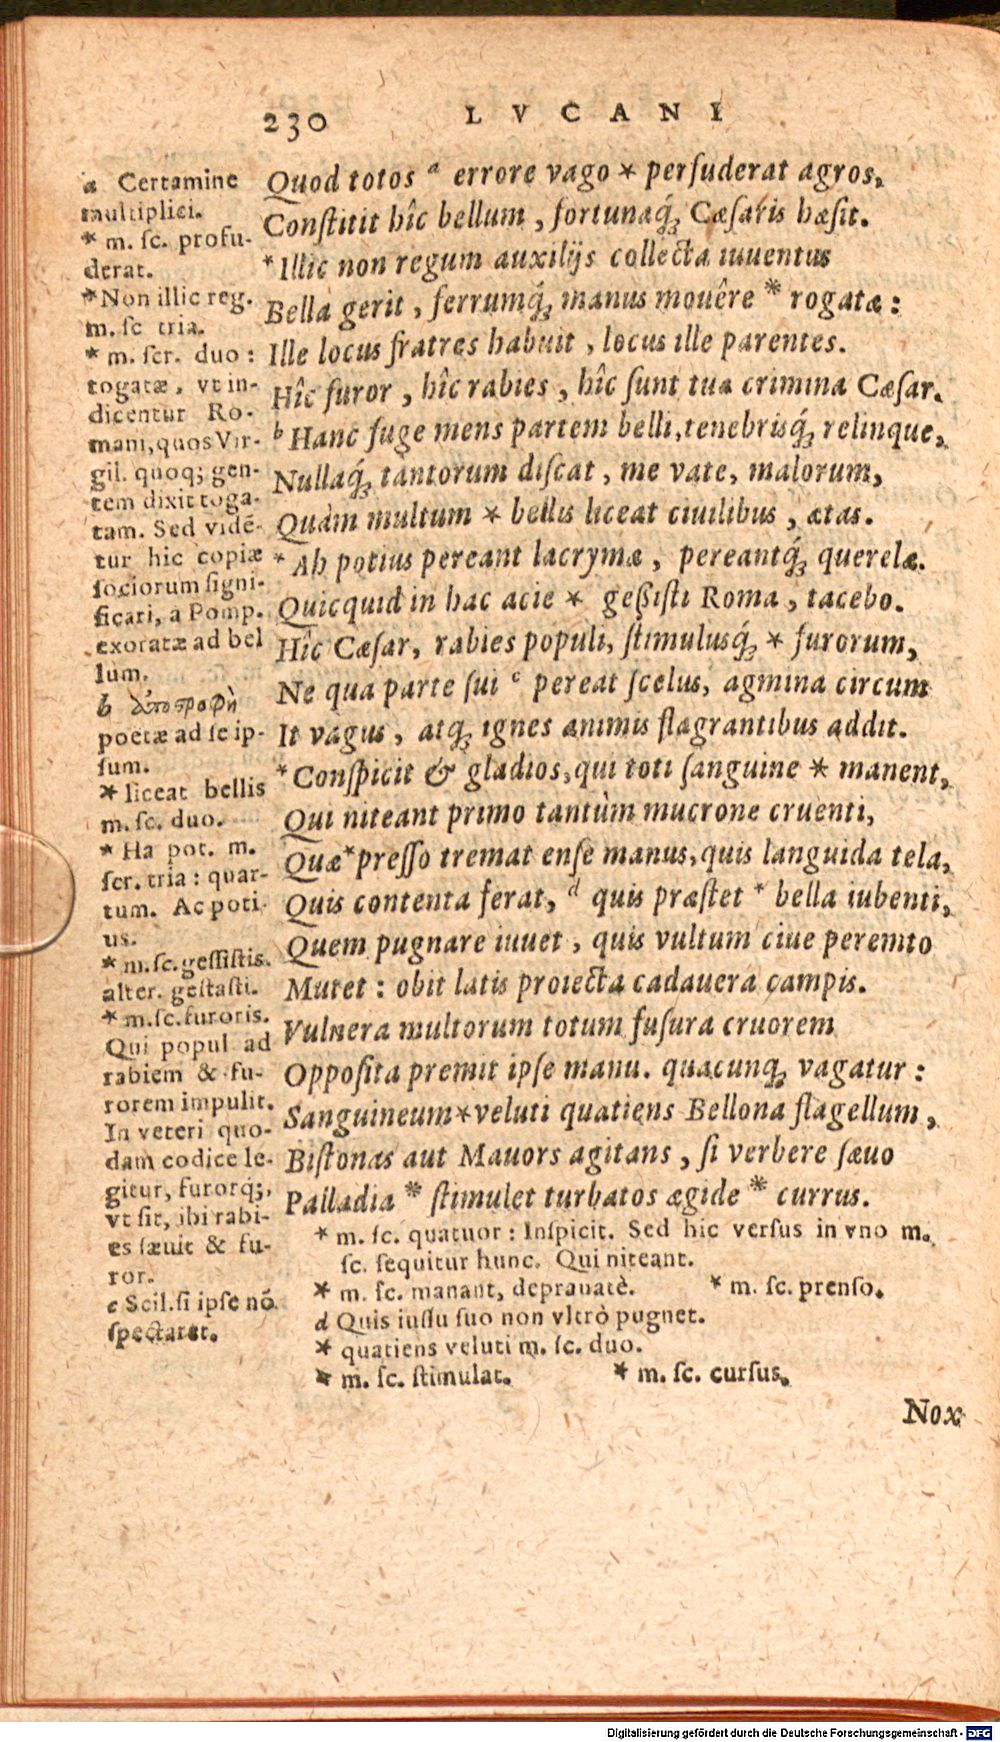 230 LVCANI
Quod totos a errore vago * perſuderat agros,
Conſtitit hîc bellum, fortunaq́; Cæſaris hæſit.
*Illic non regum auxilijs collecta iuuentus
Bella gerit, ferrumq́; manus mouêre * rogatæ:
Ille locus fratres habuit, locus ille parentes.
Hîc furor, hîc rabies, hîc ſunt tua crimina Cæſar.
b Hanc fuge mens partem belli, tenebrisq́; relinque,
Nullaq́; tantorum diſcat, me vate, malorum,
Quàm multum * bellis liceat ciuilibus, ætas.
* Ah potius pereant lacrymæ, pereantq́; querelæ.
Quicquid in hac acie * geßisti Roma, tacebo.
Hîc Cæſar, rabies populi, ſtimulusq́; * furorum,
Ne qua parte ſui c pereat ſcelus, agmina circum
It vagus, atq; ignes animis flagrantibus addit.
*Conſpicit & gladios, qui toti ſanguine * manent,
Qui niteant primo tantùm mucrone cruenti,
Quæ *preſſo tremat enſe manus, quis languida tela,
Quis contenta ferat, d quis præſtet * bella iubenti,
Quem pugnare iuuet, quis vultum ciue peremto
Mutet: obit latis proiecta cadauera campis.
Vulnera multorum totum fuſura cruorem
Oppoſita premit ipſe manu. quacunq; vagatur:
Sanguineum *veluti quatiens Bellona flagellum,
Biſtonas aut Mauors agitans, ſi verbere ſæuo
Palladia * ſtimulet turbatos ægide * currus.
a Certamine
multiplici.
* m. ſc. profu-
derat.
*Non illic reg.
m. ſc tria.
* m. ſcr. duo:
togatæ, vt in-
dicentur Ro-
mani, quos Vir-
gil. quoq; gen-
tem dixit toga-
tam. Sed vidē-
tur hic copiæ
ſociorum ſigni-
ficari, a Pomp.
exoratæ ad bel
lum.
b ἀποστροφὴ
poetæ ad ſe ip-
ſum.
* liceat bellis
m. ſc. duo.
* Ha pot. m.
ſcr. tria: quar-
tum. Ac poti-
us.
* m. ſc. geſſiſtis.
alter. geſtaſti.
* m. ſc. furoris.
Qui popul ad
rabiem & fu-
rorem impulit.
In veteri quo-
dam codice le-
gitur, furorq;,
vt ſit, ibi rabi-
es ſæuit & fu-
ror.
c Scil. ſi ipſe nō
ſpectaret.
* m. ſc. quatuor: Inſpicit. Sed hic verſus in vno m.
ſc. ſequitur hunc. Qui niteant.
* m. ſc. manant, deprauatè. * m. ſc. prenſo.
d Quis iuſſu ſuo non vltrò pugnet.
* quatiens veluti m. ſc. duo.
* m. ſc. ſtimulat. * m. ſc. curſus.
Nox
Digitalisierung gefördert durch die Deutsche Forschungsgemeinschaft - DFG